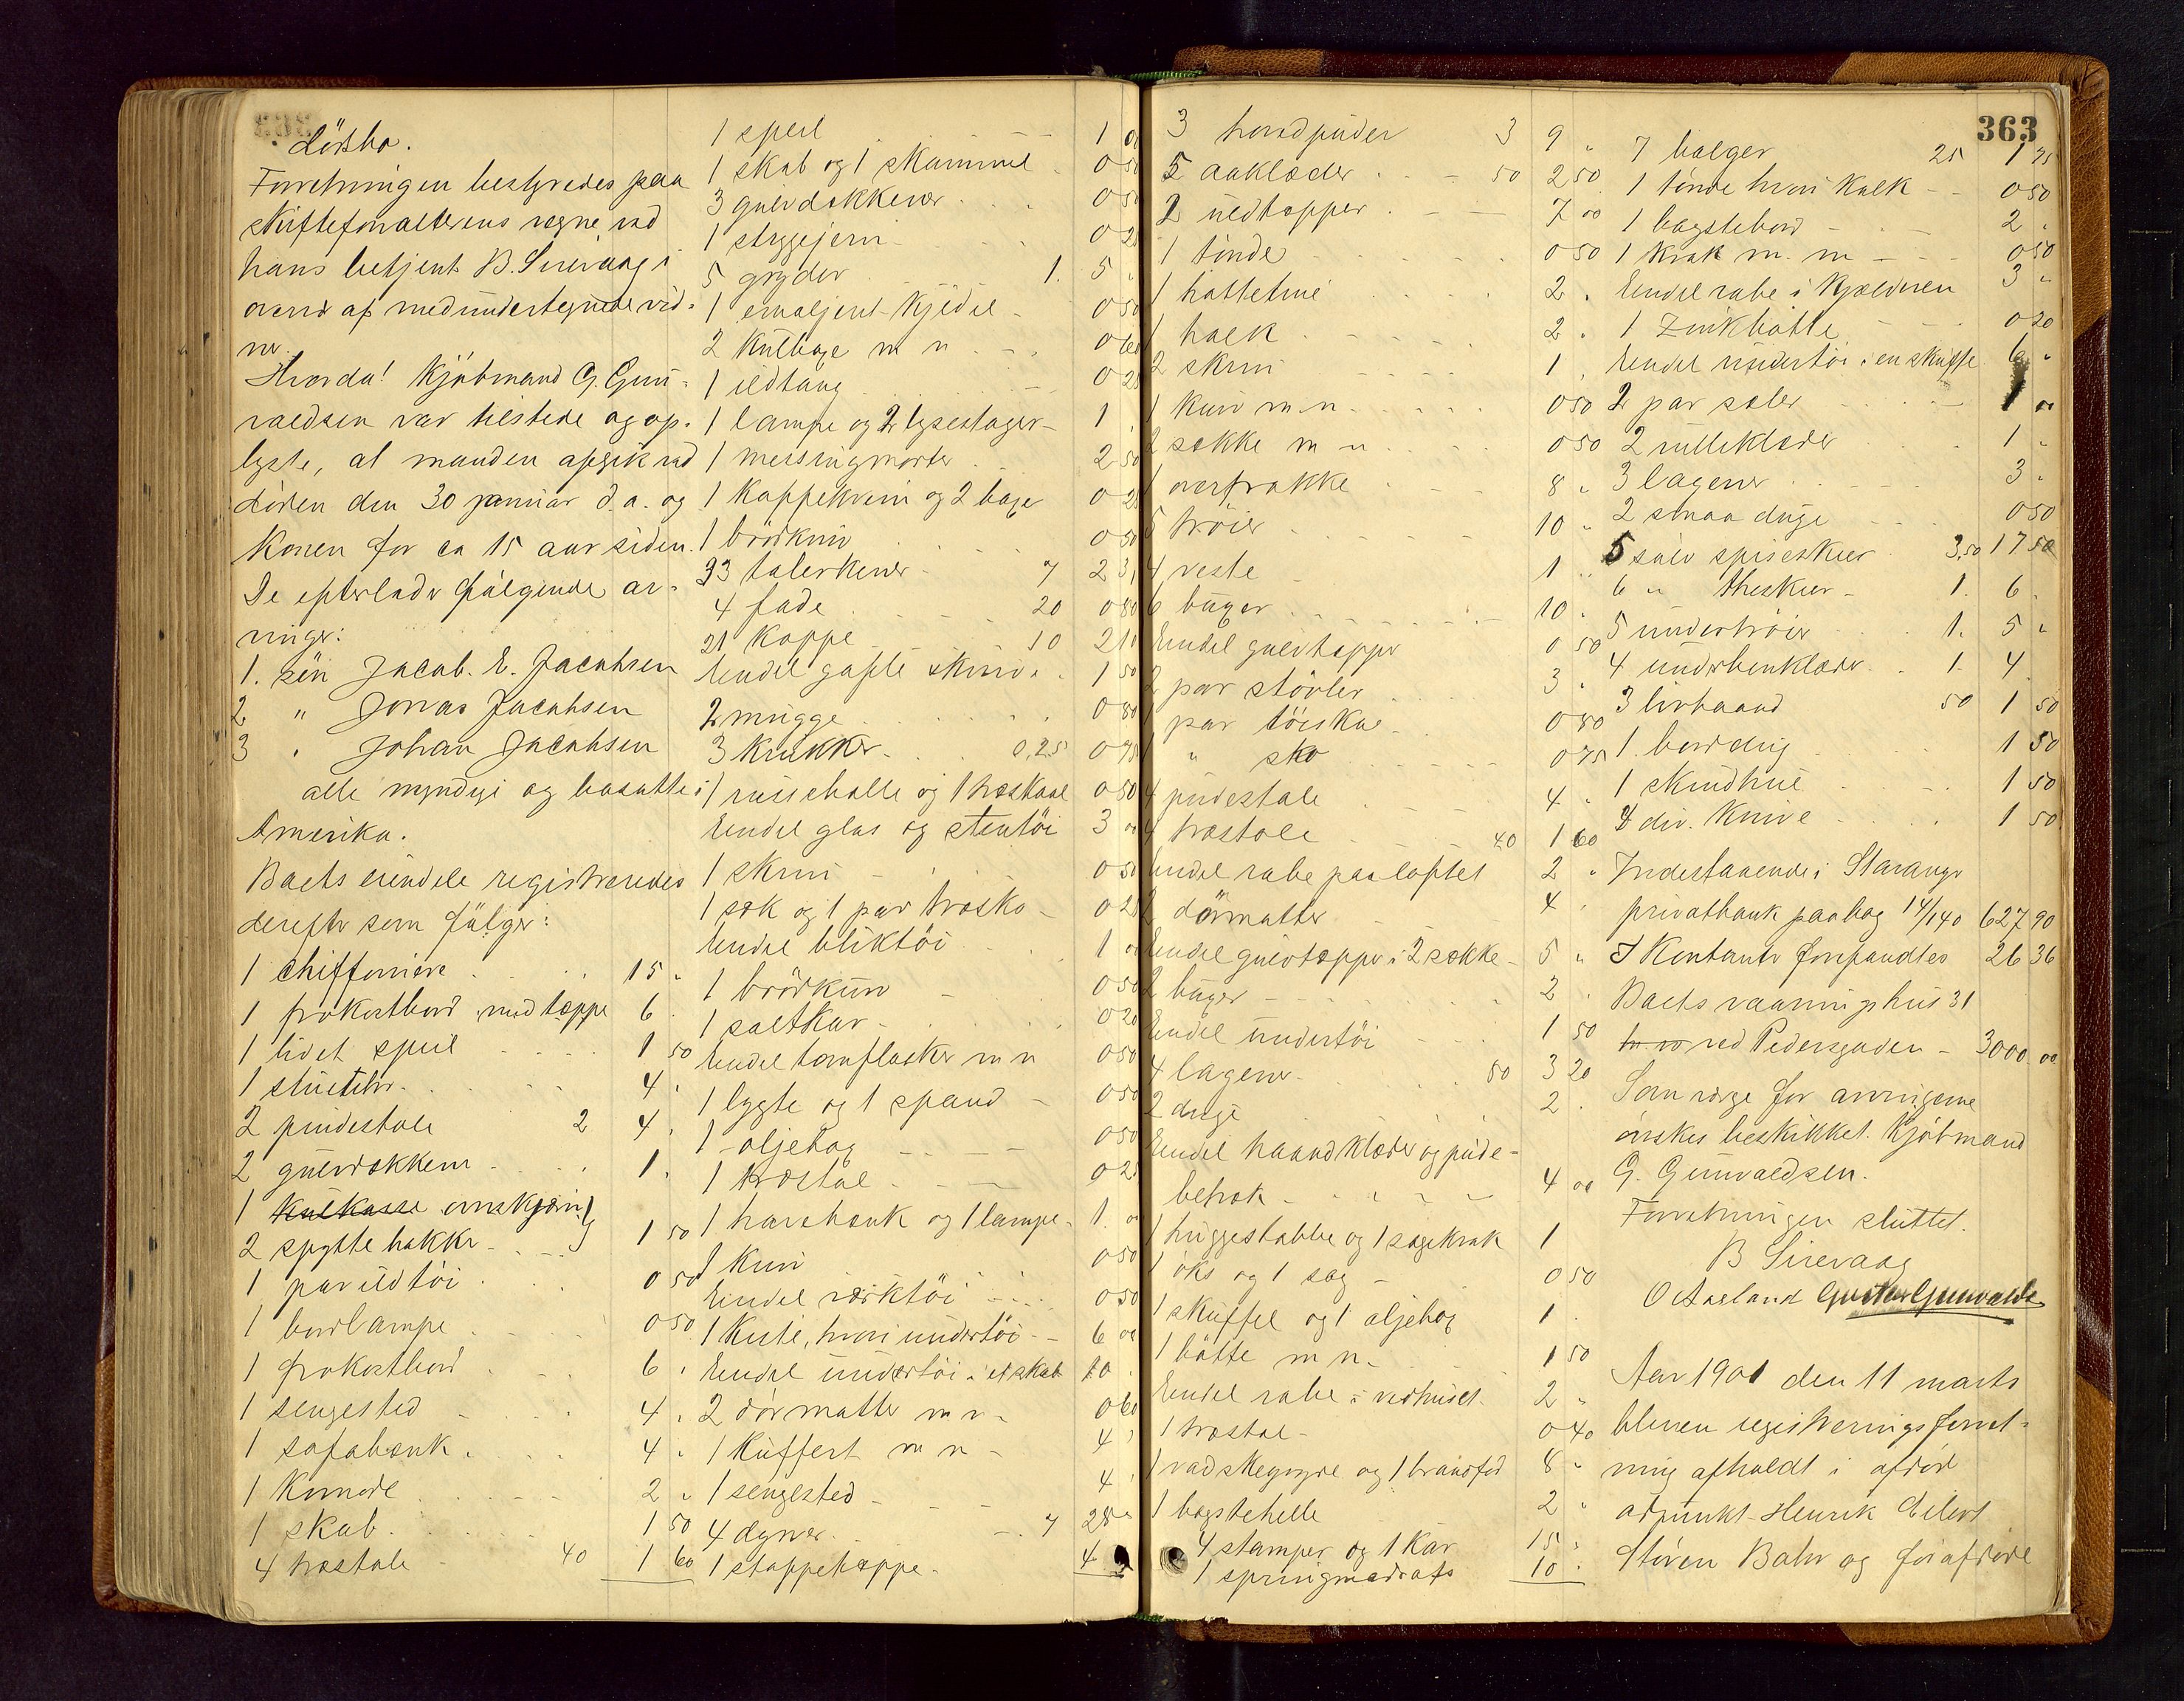 363
Løsthø.
Forretningen bestyredes paa
skifteforvalterens vegne ved
hans betjent B. Sirevaag i
overvær af medundertegnede vid-
ner.
Hvorda! Kjøbmand G. Gun-
valdsen var tilstede og op-
lyste, at manden afgik ved
døden den 30 januar d.a. og
Konen for ca 15 aar siden.
De efterlader følgende ar-
vinger:
1. søn Jacob. E. Jacobsen
2 " Jonas Jacobsen
3 " Johan Jacobsen
alle myndige og bosatte i
Amerika.
Boets eiendele registreredes
derefter som følger:
1 chiffoniere 15 "
1 frokostbord med tæppe 6
1 lidet speil 1 50
1 stueuhr 4 "
2 pindestole 2 4 "
2 gulvdækkener 1 "
1 kulkasse ovnskjærm
2 spyttebakker 1 50
1 par ildtøi 0 50
1 bordlampe 0 50
1 frokostbord 6 "
1 sengested 4 "
1 sofabænk 4 "
1 Komode 2 "
1 skab 1 50
4 træstole 40 1 60
1 speil 1 00
1 skab og 1 skammel 0 50
3 gulvdækkener 0 50
1 strygejern 0 25
5 gryder 1. 5 "
1 emaljeret Kjedel 0 50
2 Kulbøge m m 0 60
1 ildtang 0 25
1 lampe og 2 lysestager 1
1 messingmorter 2 50
1 Kaffekværn og 2 bøge 0 25
1 brødkurv 0 50
33 talerkener 7 2 31
4 fade 20 0 80
21 Koppe 10 2 10
Endel gafle skeer 1 50
2 mugge 0 80
3 Krukker 0,25 0 75
1 rusebolle og 1 træskaal 0 50
Endel glas og stentøi 3 00
1 skrin 0 50
1 sæk og 1 par træsko 0 25
Endel bliktøi 1 00
1 brødkurv 0 50
1 saltkar 0 20
Endel tomflasker m m 0 50
1 lygte og 1 spand 0 50
1 oljebøg 0 50
1 træstol 0 25
1 havebænk og 1 lampe 1. 00
1 Kurv 0 50
Endel værktøi 0 50
1 Kiste, hvori undertøi 6 00
Endel undertøi i et skab 10.
2 dørmatter m m 0 60
1 Kuffert m m 4 "
1 sengested 4 "
4 dyner 7 28 "
1 stoppetæppe 4
3 hovedpuder 3 9 "
5 aaklæder 50 2 50
2 uldtæpper 7 00
1 tønde 0 50
1 hattehue 2 "
1 balk 2 "
2 skrin 1 "
1 Kurv m m 0 50
2 sække m m 0 50
1 overfrakke 8 "
5 trøier 10 "
4 veste 1 "
6 buxer 10 "
Endel gulvtæpper 0 50
2 par støvler 3 "
1 par tøisko 0 80
1 " sko 0 75
4 pindestole 4 "
4 træstole 40 1 60
Endel rabe paa loftet 2 "
2 dørmatter 4 "
Endel gulvtæpper i 2 sække 5 "
2 buxer 2 "
Endel undertøi 1 50
4 lagener 80 3 20
2 duge 2 "
Endel haandklæder og pude-
betræk 4 00
1 huggestabbe og 1 sagekrak 1
1 øks og 1 sag 0 50
1 skuffel og 1 oljebøg 1 "
1 bøtte m m 1 50
Endel rabe i vedhuset 2 "
1 træstol 0 40
1 vadskegryde og 1 brandfod 8 "
1 bagstehelle 2 "
4 stamper og 1 kar 15 "
1 springmadrats 10 "
7 balger 25 1 75
1 tønde hvori Kalk 0 50
1 bagstebord 2 "
1 krak m. m 0 50
Endel rabe i Kjælderen 3 "
1 Zinkbøtte 0 20
Endel undertøi i en skuffe 6 "
2 par seler 1 00
2 rulleklæder 1 "
3 lagener 3 "
2 smaa duge 0 50
5 sølv spiseskeer 3,50 17 50
6 " theskeer 1. 6 "
5 undertrøier 1. 5 "
4 underbenklæder 1. 4
3 livbaand 50 1 50
1. borddug 1 50
1 skindhue 1 50
4 div. Knive 1 50
Indestaaende i Stavanger
privatbank paa bog 14/140 627 90
I Kontanter forefandtes 26 36
Boets vaaningshus 31
ved Pedersgaden 3000 00
Som værge for arvingerne
ønskes beskikket Kjøbmand
G. Gunvaldsen.
Forretningen sluttet.
B Sirevaag
O Aasland Gustav Gunvalds
Aar 1901 den 11 marts
bleven registreringsforret-
ning afholdt i afdød
adjunkt Henrik Eilert
Støren Bahr og før afdøde